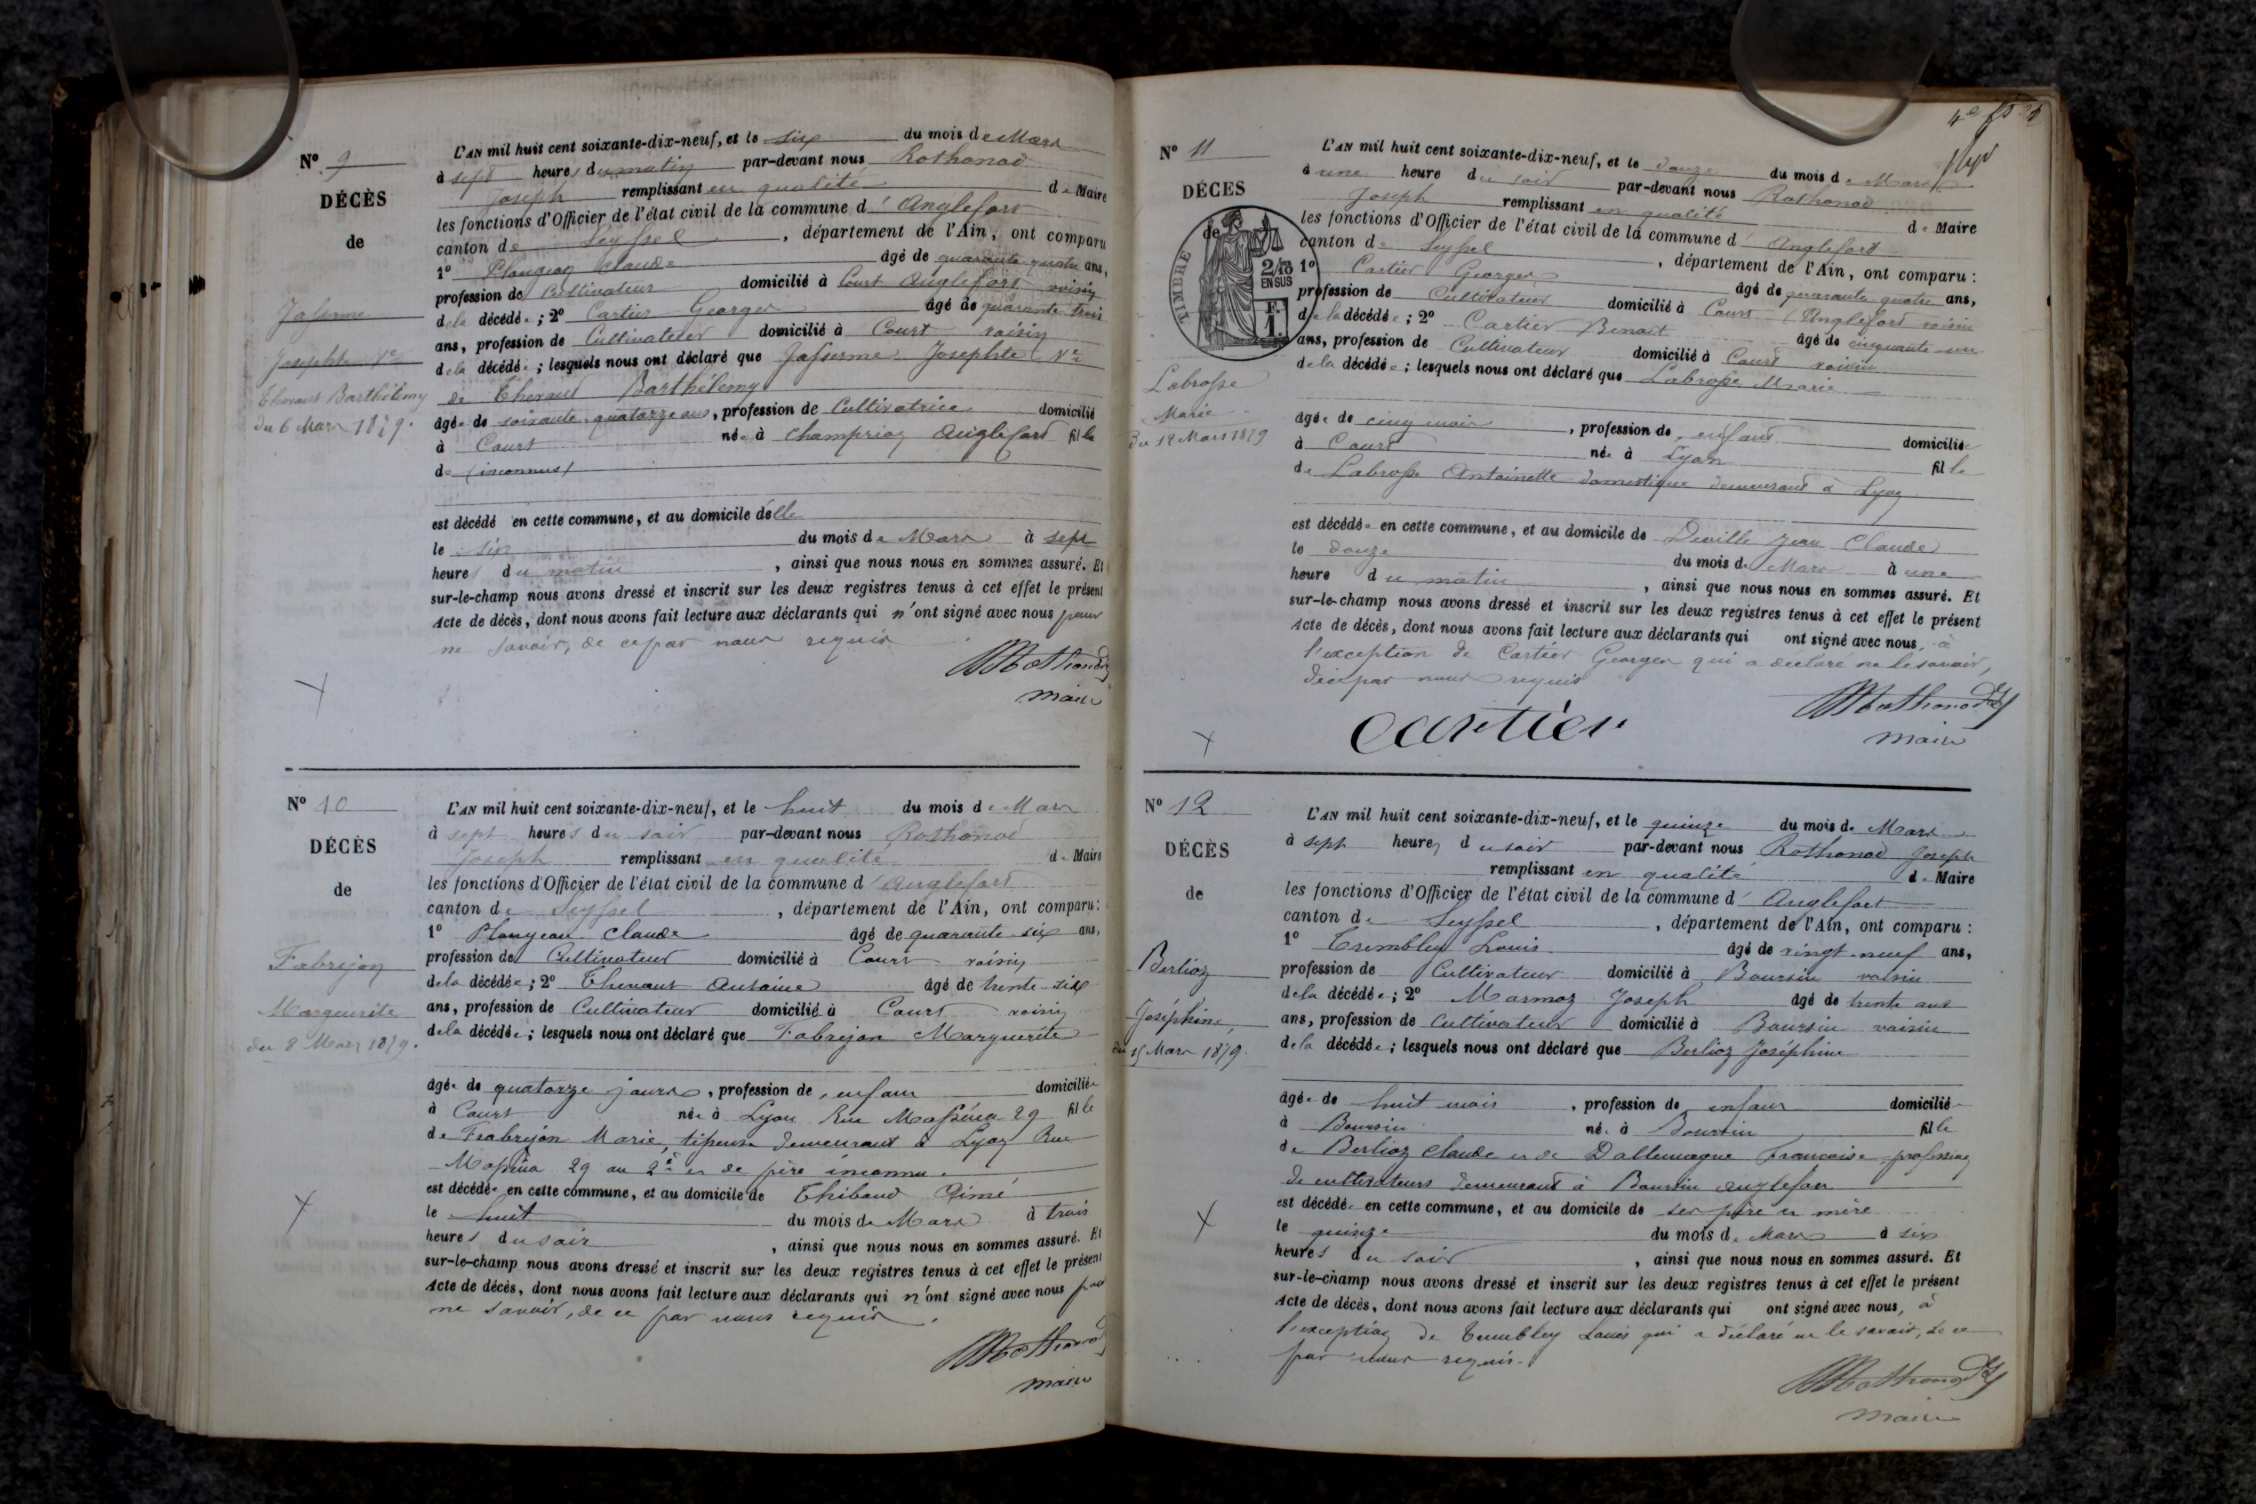 Nº 9
DÉCÈS
de
Jasserme
Josephte Vve
Thevant Barthélemy
du 6 Mars 1879.
L'AN mil huit cent soixante-dix-neuf, et le six du mois de Mars
à sept heures du matin par-devant nous Rothonod
Joseph remplissant en qualité de Maire
les fonctions d'Officier de l'état civil de la commune d'Anglefort
canton de Seyssel, département de l'Ain, ont comparu
1º Plangean Claude âgé de quarante quatre ans,
profession de Cultivateur domicilié à Court Anglefort voisin
de la décédée; 2º Cartier Georges âgé de quarante trois
ans, profession de Cultivateur domicilié à Court voisin
de la décédée; lesquels nous ont déclaré que Jasserme Josephte Vve
de Thevant Barthélemy
âgée de soixante quatorze ans, profession de Cultivatrice domicilié
à Court née à Champriaz Anglefort fille
de (inconnus)
est décédé en cette commune, et au domicile d'elle
le six du mois de Mars à sept
heures du matin, ainsi que nous nous en sommes assuré. Et
sur-le-champ nous avons dressé et inscrit sur les deux registres tenus à cet effet le présent
Acte de décès, dont nous avons fait lecture aux déclarants qui n'ont signé avec nous pour
ne savoir, de ce par nous requis
Rothonod
maire
Nº 10
DÉCÈS
de
Fabrejon
Marguerite
du 8 Mars 1879.
L'AN mil huit cent soixante-dix-neuf, et le huit du mois de Mars
à sept heures du soir par-devant nous Rothonod
Joseph remplissant en qualité de Maire
les fonctions d'Officier de l'état civil de la commune d'Anglefort
canton de Seyssel, département de l'Ain, ont comparu:
1º Plangean Claude âgé de quarante six ans,
profession de Cultivateur domicilié à Court voisin
de la décédée; 2º Thevant Antoine âgé de trente-six
ans, profession de Cultivateur domicilié à Court voisin
de la décédée; lesquels nous ont déclaré que Fabrejon Marguerite
âgée de quatorze jours, profession de enfant domiciliée
à Court née à Lyon Rue Masséna 29 fille
de Frabrejon Marie, tisseuse demeurant à Lyon Rue
Masséna 29 au 2è et de père inconnu.
est décédée en cette commune, et au domicile de Thibaud Aimé
le huit du mois de Mars à trois
heures du soir, ainsi que nous nous en sommes assuré. Et
sur-le-champ nous avons dressé et inscrit sur les deux registres tenus à cet effet le présent
Acte de décès, dont nous avons fait lecture aux déclarants qui n'ont signé avec nous pour
ne savoir, de ce par nous requis.
Rothonod
maire
4e
Nº 11
DÉCÈS
de
TIMBRE
2/10
EN SUS
F.
1.
Labrosse
Marie
Du 12 Mars 1879
L'AN mil huit cent soixante-dix-neuf, et le douze du mois de Mars
à une heure du soir par-devant nous Rothonod
Joseph remplissant en qualité de Maire
les fonctions d'Officier de l'état civil de la commune d'Anglefort
canton de Seyssel, département de l'Ain, ont comparu:
1º Cartier Georges âgé de quarante quatre ans,
profession de Cultivateur domicilié à Court (Anglefort voisin
de la décédée; 2º Cartier Benoit âgé de cinquante un
ans, profession de Cultivateur domicilié à Court voisin
de la décédée; lesquels nous ont déclaré que Labrosse Marie
âgée de cinq mois, profession de enfant domiciliée
à Court née à Lyon fille
de Labrosse Antoinette domestique demeurant à Lyon
est décédée en cette commune, et au domicile de Deville Jean Claude
le douze du mois de Mars à une
heure du matin, ainsi que nous nous en sommes assuré. Et
sur-le-champ nous avons dressé et inscrit sur les deux registres tenus à cet effet le présent
Acte de décès, dont nous avons fait lecture aux déclarants qui ont signé avec nous, à
l'exception de Cartier Georges qui a déclaré ne le savoir,
de ce par nous requis
cartier
Rothonod
maire
Nº 12
DÉCÈS
de
Berlioz
Joséphine
du 15 Mars 1879.
L'AN mil huit cent soixante-dix-neuf, et le quinze du mois de Mars
à sept heures du soir par-devant nous Rothonod Joseph
remplissant en qualité de Maire
les fonctions d'Officier de l'état civil de la commune d'Anglefort
canton de Seyssel, département de l'Ain, ont comparu:
1º Trembley Louis âgé de vingt-neuf ans,
profession de Cultivateur domicilié à Boursin voisin
de la décédée; 2º Marmoz Joseph âgé de trente ans
ans, profession de Cultivateur domicilié à Boursin voisin
de la décédée; lesquels nous ont déclaré que Berlioz Joséphine
âgée de huit mois, profession de enfant domicilié
à Boursin née à Boursin fille
de Berlioz Claude et de Dallemagne Francoise profession
de cultivateurs demeurant à Boursin Anglefort
est décédée en cette commune, et au domicile de ses père et mère
le quinze du mois de Mars à six
heures du soir, ainsi que nous nous en sommes assuré. Et
sur-le-champ nous avons dressé et inscrit sur les deux registres tenus à cet effet le présent
Acte de décès, dont nous avons fait lecture aux déclarants qui ont signé avec nous, à
l'exception de Trembley Louis qui a déclaré ne le savoir, de ce
par nous requis.
Rothonod
maire